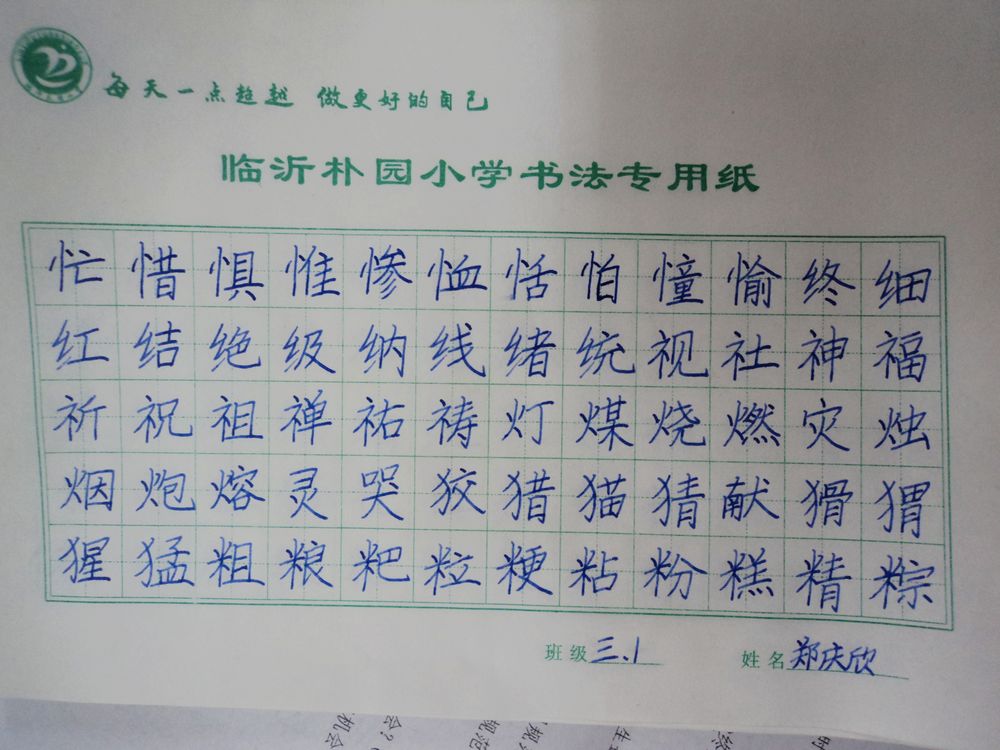 每天一点超越 做更好的自己
临沂朴园小学书法专用纸
忙惜惧惟惨恤恬怕憧愉终细
红结绝级纳线绪统视社神福
祈祝祖禅祐祷灯煤烧燃灾烛
烟炮熔灵哭狡猎猫猜献猾猬
猩猛粗粮粑粒粳粘粉糕精粽
班级 三.1 姓名 郑庆欣